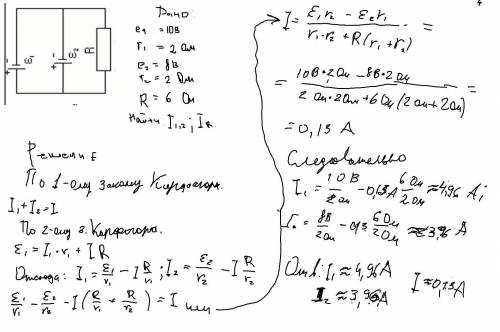 ε1
ε2
R
+
-
+
-
Дано:
e1 = 10В
r1 = 2 Ом
e2 = 8В
r2 = 2 Ом
R = 6 Ом
Найти I1,2; IR
Решение
По 1-ому закону Кирхгофа.
I1 + I2 = I
По 2-ому з. Кирхгофа.
ε1 = I1 · r1 + I R
Отсюда: I1 = ε1/r1 - I R/r1; I2 = ε2/r2 - I R/r2
ε1/r1 - ε2/r2 - I(R/r1 + R/r2) = I или
I = (ε1r2 - ε2r1)/(r1·r2 + R(r1 + r2)) =
= (10В·2Ом - 8В·2Ом)/(2Ом·2Ом + 6Ом(2Ом + 2Ом)) =
= 0,13 А
Следовательно
I1 = 10В/2Ом - 0,13А 6Ом/2Ом ≈ 4,96 А;
8В/2Ом - 6Ом/2Ом ≈ 3,96 А
Отв: I1 ≈ 4,96А
I2 ≈ 3,96А
I ≈ 0,13А